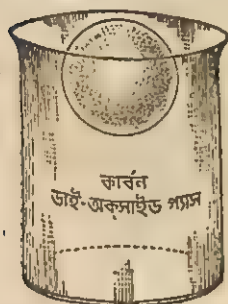 কার্বন
ডাই-অক্সাইড গ্যাস